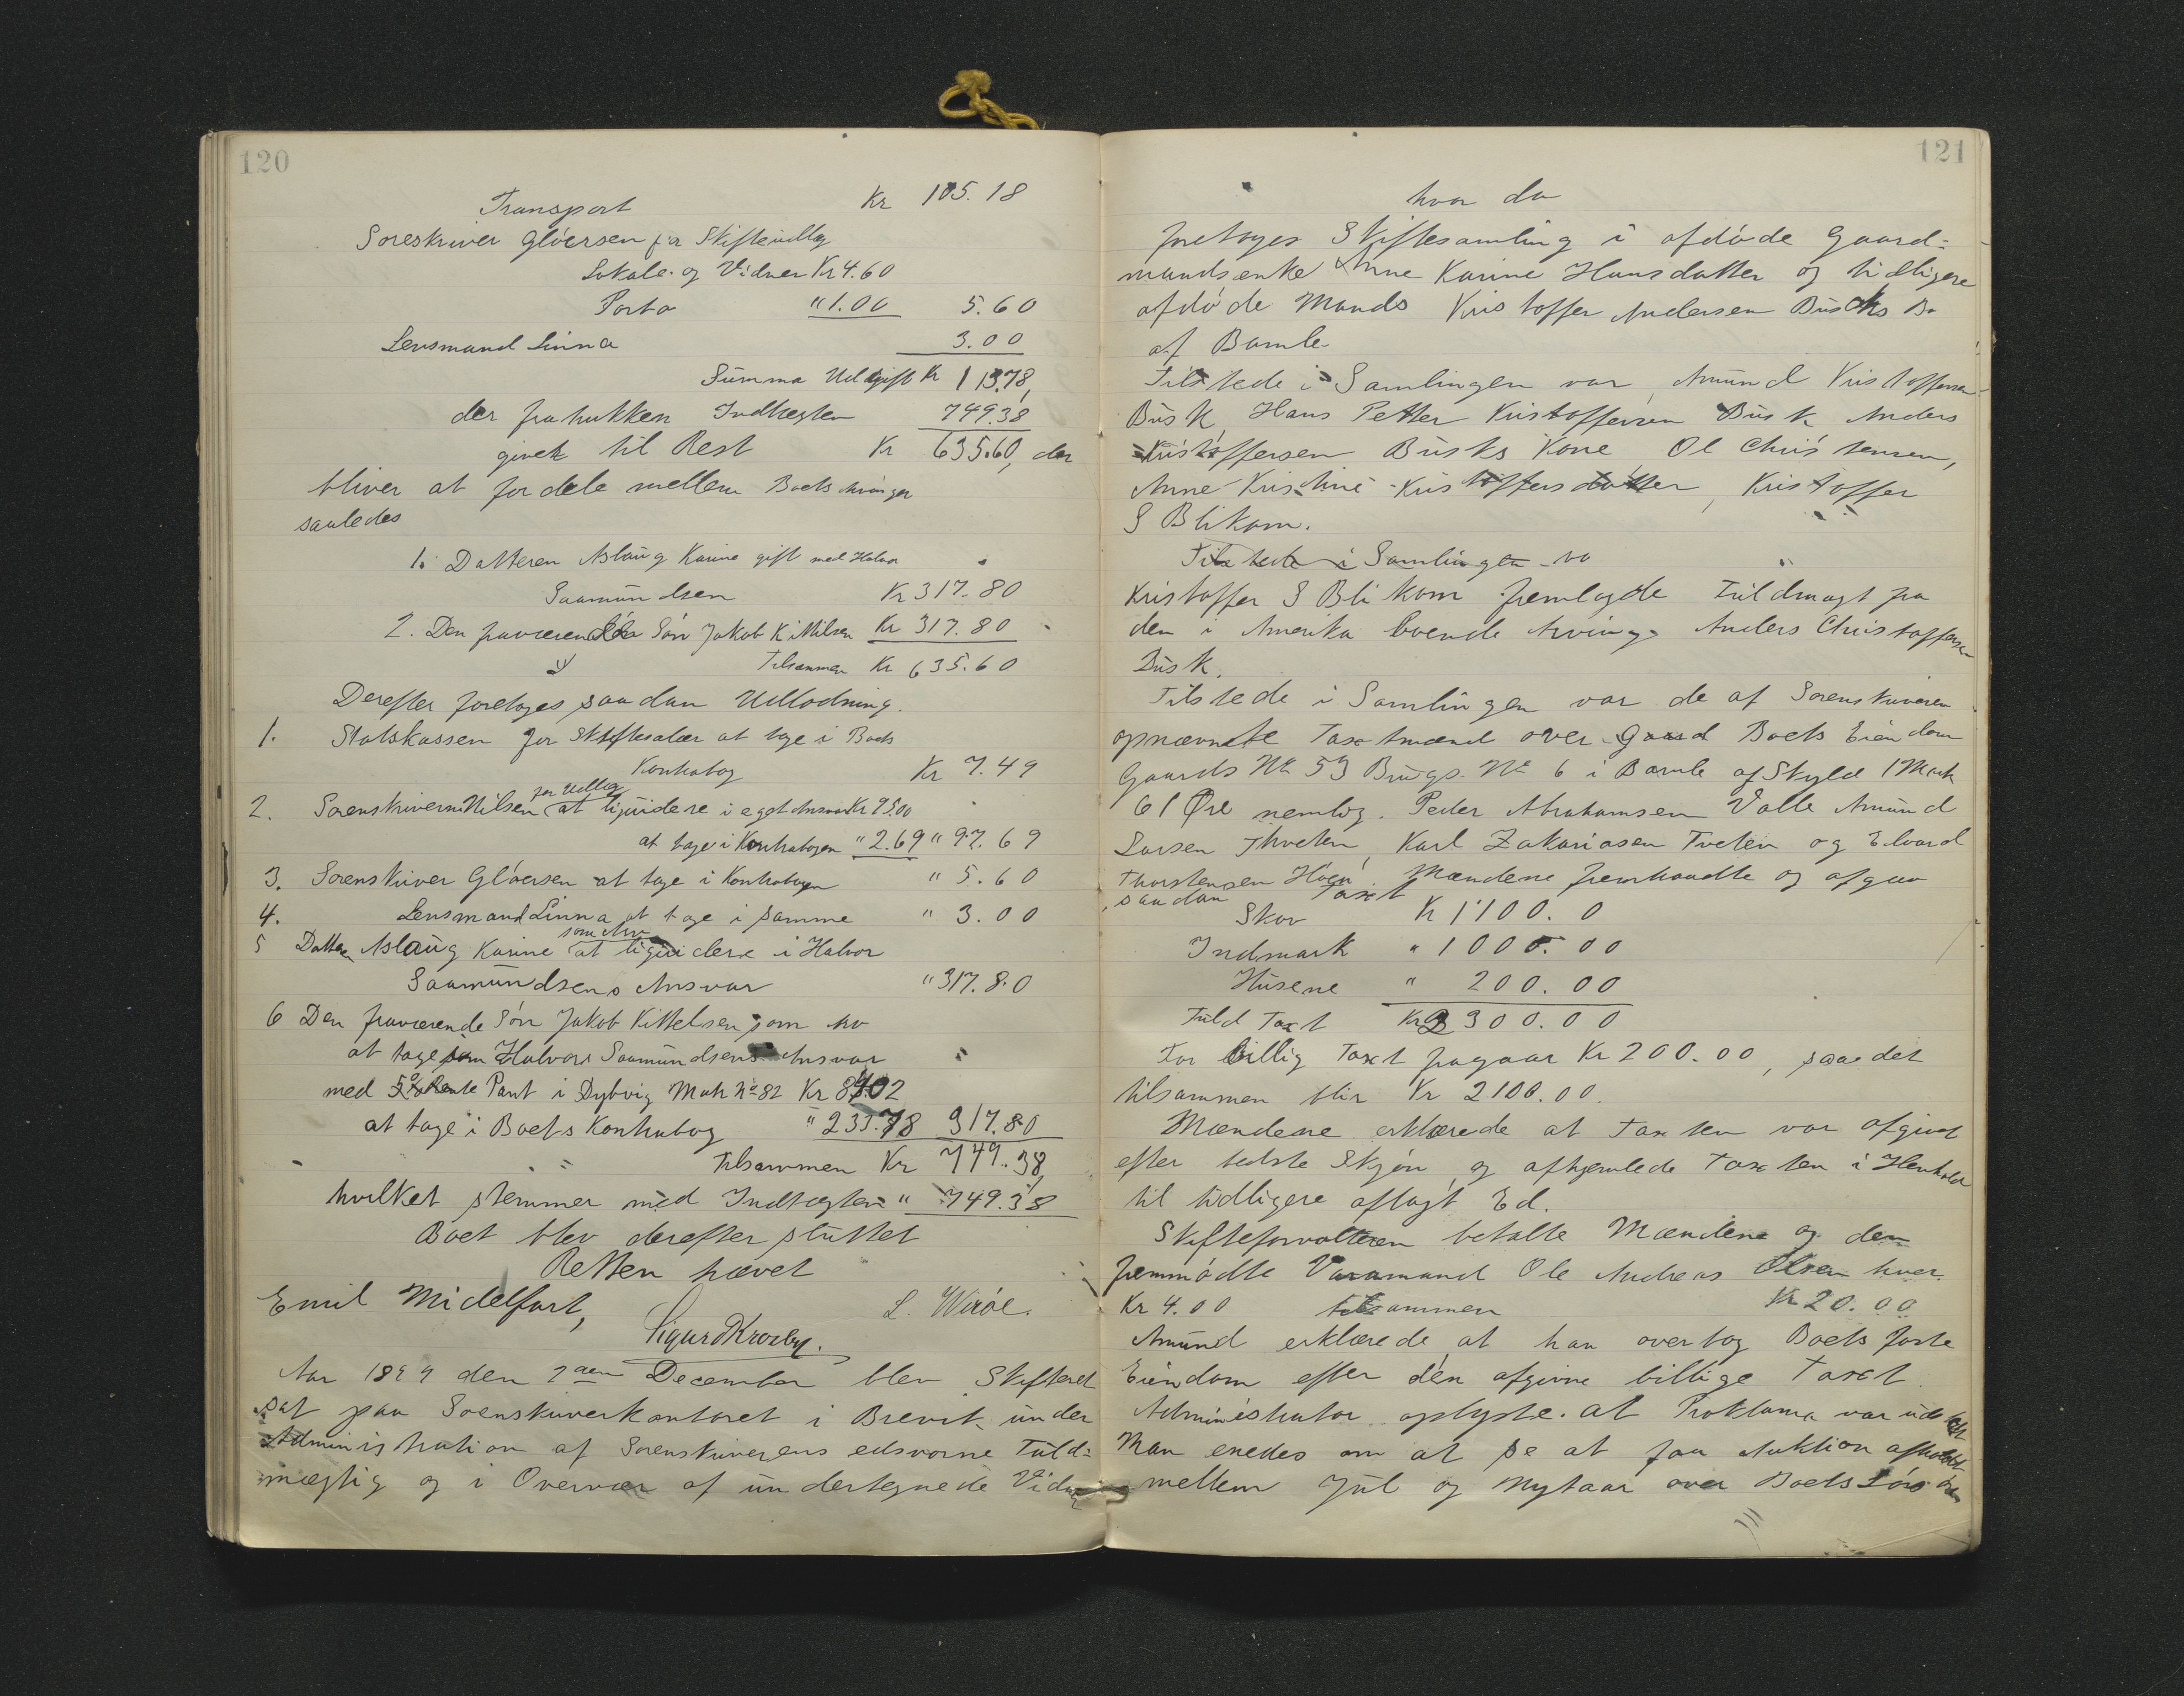 120
Transport Kr 105.18
Soreskriver Gløersen for Skifteudlæg
Lokale og Vidner Kr 4.60
Porto " 1.00 5.60
Lensmand Linna 3.00
Summa Udgift Kr 113.78,
der fratrukken Indtægten 749.38
giver til Rest Kr 635.60, der
bliver at fordele mellem Boets Arvinger
saaledes
1. Datteren Aslaug Karine gift med Halvor
Saamundsen Kr 317.80
2. Den fraværende Søn Jakob Kittilsen Kr 317.80
Tilsammen Kr 635.60
Derefter foretoges saadan Udlodning.
1. Statskassen for Skiftesalær at tage i Boets
Kontrabog Kr 7.49
for Udlæg
2. Sorenskriver Nilsen at liquidere i eget Ansvar Kr 95.00
at tage i Kontrabogen " 2.69 " 97.69
3. Sorenskriver Gløersen at tage i Kontrabogen " 5.60
4. Lensmand Linna at tage i samme " 3.00
som Arv
5 Datteren Aslaug Karine at liquidere i Halvor
Saamundsens Ansvar " 317.80
6 Den fraværende Søn Jakob Kittelsen som Arv
at tage Halvors Saamundsens Ansvar
med 5% Rente Pant i Dybvig Matr No 82 Kr 84.02
at tage i Boets Kontrabog " 233.78 317.80
Tilsammen Kr 749.38,
hvilket stemmer med Indtægten " 749.38
Boet blev derefter sluttet
Retten hævet
Emil Midelfart, L. Wirøe.
Sigurd Krosby.
Aar 1899 den 2den December blev Skifteret
sat paa Soenskriverkontoret i Brevik under
Administration af Sorenskriverens edsvorne Fuld-
mægtig og i Overvær af undertegnede Vidner
121
hvor da
foretoges Skiftesamling i afdøde Gaard-
mandsenke Anne Karine Hansdatter og tidligere
afdøde Mands Kristoffer Andersen Busks Bo
af Bamle
Tilstede i Samlingen var Amund Kristoffersen
Busk, Hans Petter Kristoffersen Busk Anders
Kristoffersen Busks Kone Ol Christensen,
Anne Kristine Kristoffersdatter, Kristoffer
S Blikom.
Tilstede i Samlingen va
Kristoffer S Blikom fremlagde Fuldmagt fra
den i Amerika boende Arving Anders Christoffersen
Busk.
Tilstede i Samlingen var de af Sorenskriveren
opnævnte Taxtmænd over Gaard Boets Eiendom
Gaards No 53 Brugs No 6 i Bamle af Skyld 1 Mark
61 Øre nemlig. Peder Abrahamsen Valle Amund
Larsen Thveten, Karl Zakariasen Tveten og Edvard
Thorstensen Høen, Mændene fremhandte og afgav
saadan Taxt
Skov Kr 1100. 0
Indmark " 1000.00
Husene " 200.00
Fuld Taxt Kr 2300.00
For billig Taxt fragaar Kr 200.00, saa det
tilsammen blir Kr 2100.00.
Mændene erklærede at Taxten var afgivet
efter bedste Skjøn, og afhjemlede Taxten i Henhold
til tidligere aflagt Ed.
Skifteforvalteren betalte Mændene og den
fremmødte Varamand Ole Andreas Olsen hver
Kr 4.00 tilsammen Kr 20.00
Amund erklærede at han overtog Boets faste
Eiendom efter den afgivne billige Taxt.
Administrator oplyste at Proklama var udstedt
Man enedes om at se at faa Auktion afholdt
mellem Jul og Nytaar over Boets Løsøre